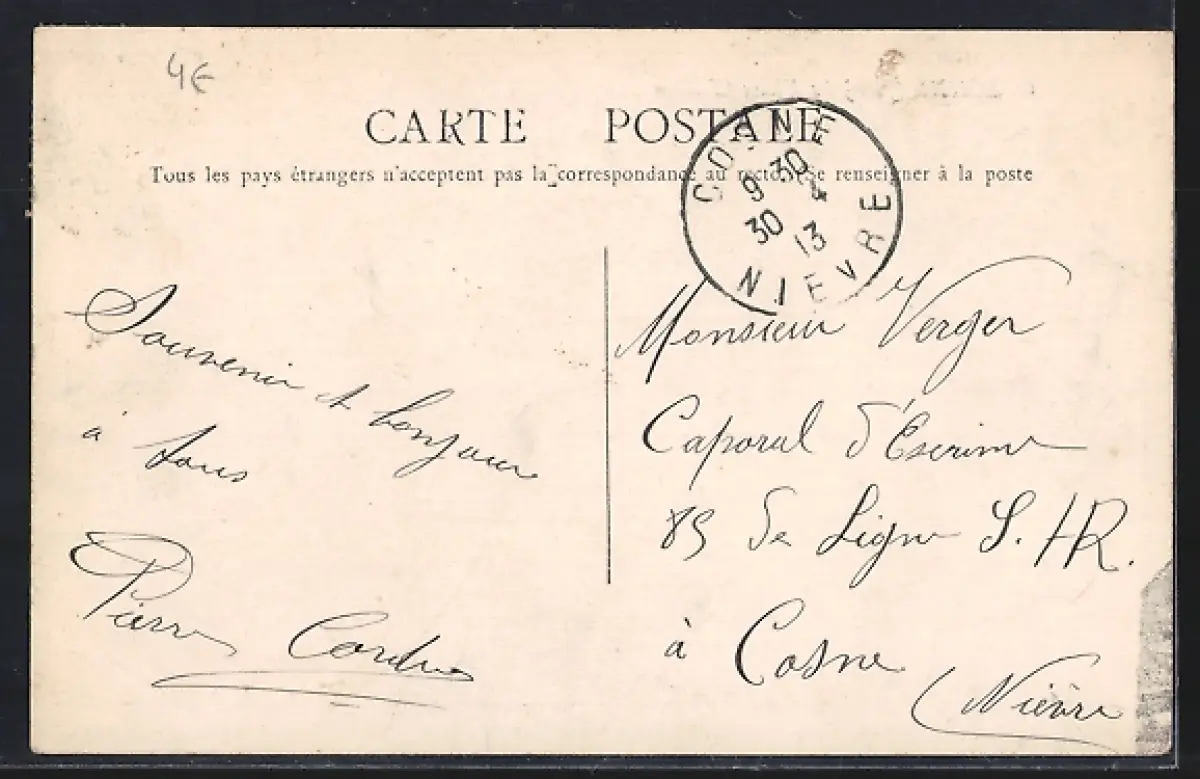 4€
CARTE POSTALE
Tous les pays étrangers n'acceptent pas la correspondance au recto. (Se renseigner à la poste
COSNE
9 30
30 4
13
NIEVRE
Souvenir et bonjour
à tous
Pierre
Monsieur Verger
Caporal d'Escrime
85 de Ligne S.H.R.
à Cosne
(Nièvre